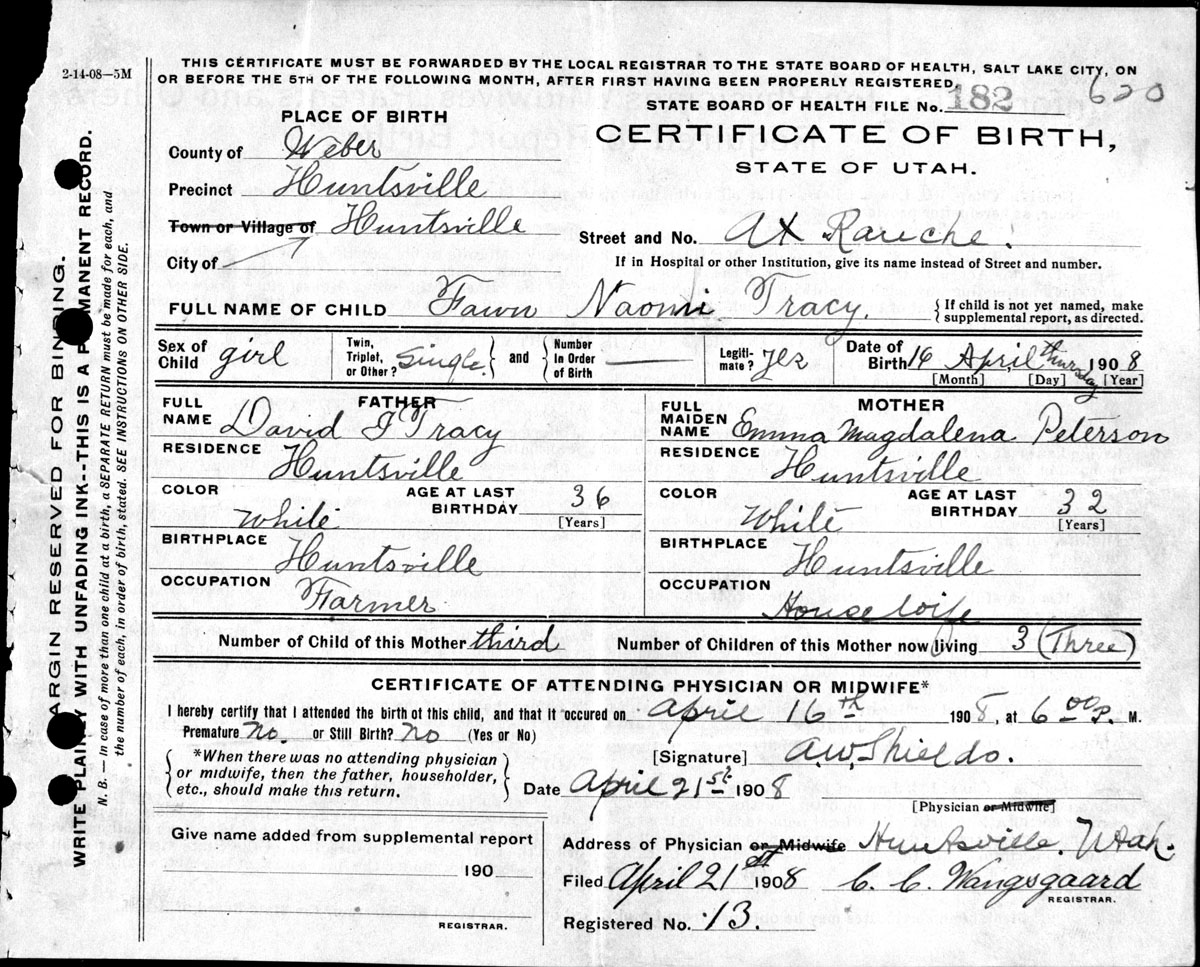 2-14-08—5M
THIS CERTIFICATE MUST BE FORWARDED BY THE LOCAL REGISTRAR TO THE STATE BOARD OF HEALTH, SALT LAKE CITY, ON
OR BEFORE THE 5TH OF THE FOLLOWING MONTH, AFTER FIRST HAVING BEEN PROPERLY REGISTERED.
620
STATE BOARD OF HEALTH FILE No. 182
PLACE OF BIRTH
CERTIFICATE OF BIRTH,
STATE OF UTAH.
County of Weber
Precinct Huntsville
Town or Village of Huntsville
City of
Street and No. At
If in Hospital or other Institution, give its name instead of Street and number.
FULL NAME OF CHILD Fawn Naomi Tracy.
{ If child is not yet named, make
supplemental report, as directed.
Sex of Child girl
Twin, Triplet, or Other? Single. and Number In Order of Birth
Legitimate? yes
Date of Birth 16 April thursday 1908
[Month] [Day] [Year]
FATHER
FULL NAME David J Tracy
RESIDENCE Huntsville
COLOR White
AGE AT LAST BIRTHDAY 36
[Years]
BIRTHPLACE Huntsville
OCCUPATION Farmer
MOTHER
FULL MAIDEN NAME Emma Magdalena Peterson
RESIDENCE Huntsville
COLOR White
AGE AT LAST BIRTHDAY 32
[Years]
BIRTHPLACE Huntsville
OCCUPATION House wife
Number of Child of this Mother third
Number of Children of this Mother now living 3 (Three)
CERTIFICATE OF ATTENDING PHYSICIAN OR MIDWIFE*
I hereby certify that I attended the birth of this child, and that it occured on April 16th 1908, at 6 00 P. M.
Premature No. or Still Birth? No (Yes or No)
*When there was no attending physician
or midwife, then the father, householder,
etc., should make this return.
[Signature] A.W. Shields.
Date April 21st 1908
[Physician or Midwife]
Give name added from supplemental report
190
REGISTRAR.
Address of Physician or Midwife Huntsville. Utah.
Filed April 21st 1908 C. C. Wangsgaard
REGISTRAR.
Registered No. 13.
MARGIN RESERVED FOR BINDING.
WRITE PLAINLY WITH UNFADING INK--THIS IS A PERMANENT RECORD.
N. B. — In case of more than one child at a birth, a SEPARATE RETURN must be made for each, and
the number of each, in order of birth, stated. SEE INSTRUCTIONS ON OTHER SIDE.